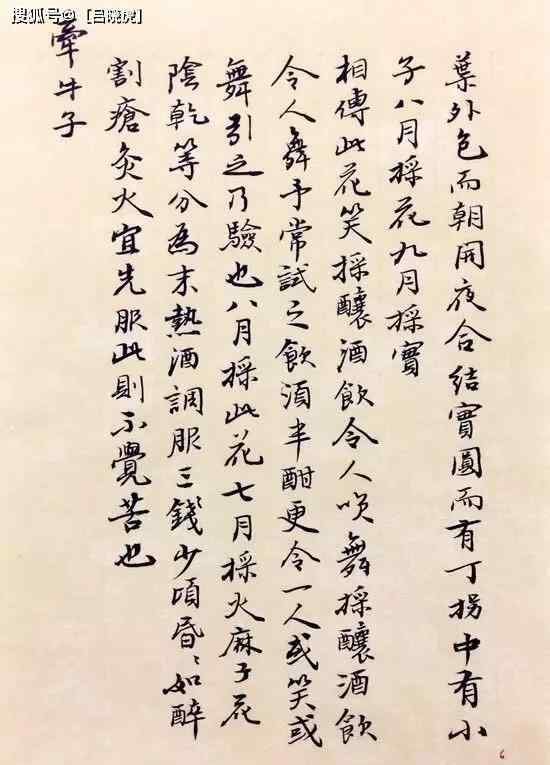 搜狐号@【吕晓虎】
葉外包而朝開夜合結實圓而有丁拐中有小
子八月採花九月採實
相傳此花笑採釀酒飲令人咲舞採釀酒飲
令人舞予常試之飲湏半酣更令一人或笑或
舞引之乃驗也八月採此花七月採火麻子花
陰乾等分為末熱酒調服三錢少頃昏〻如醉
割瘡灸火宜先服此則不覺苦也
牽牛子